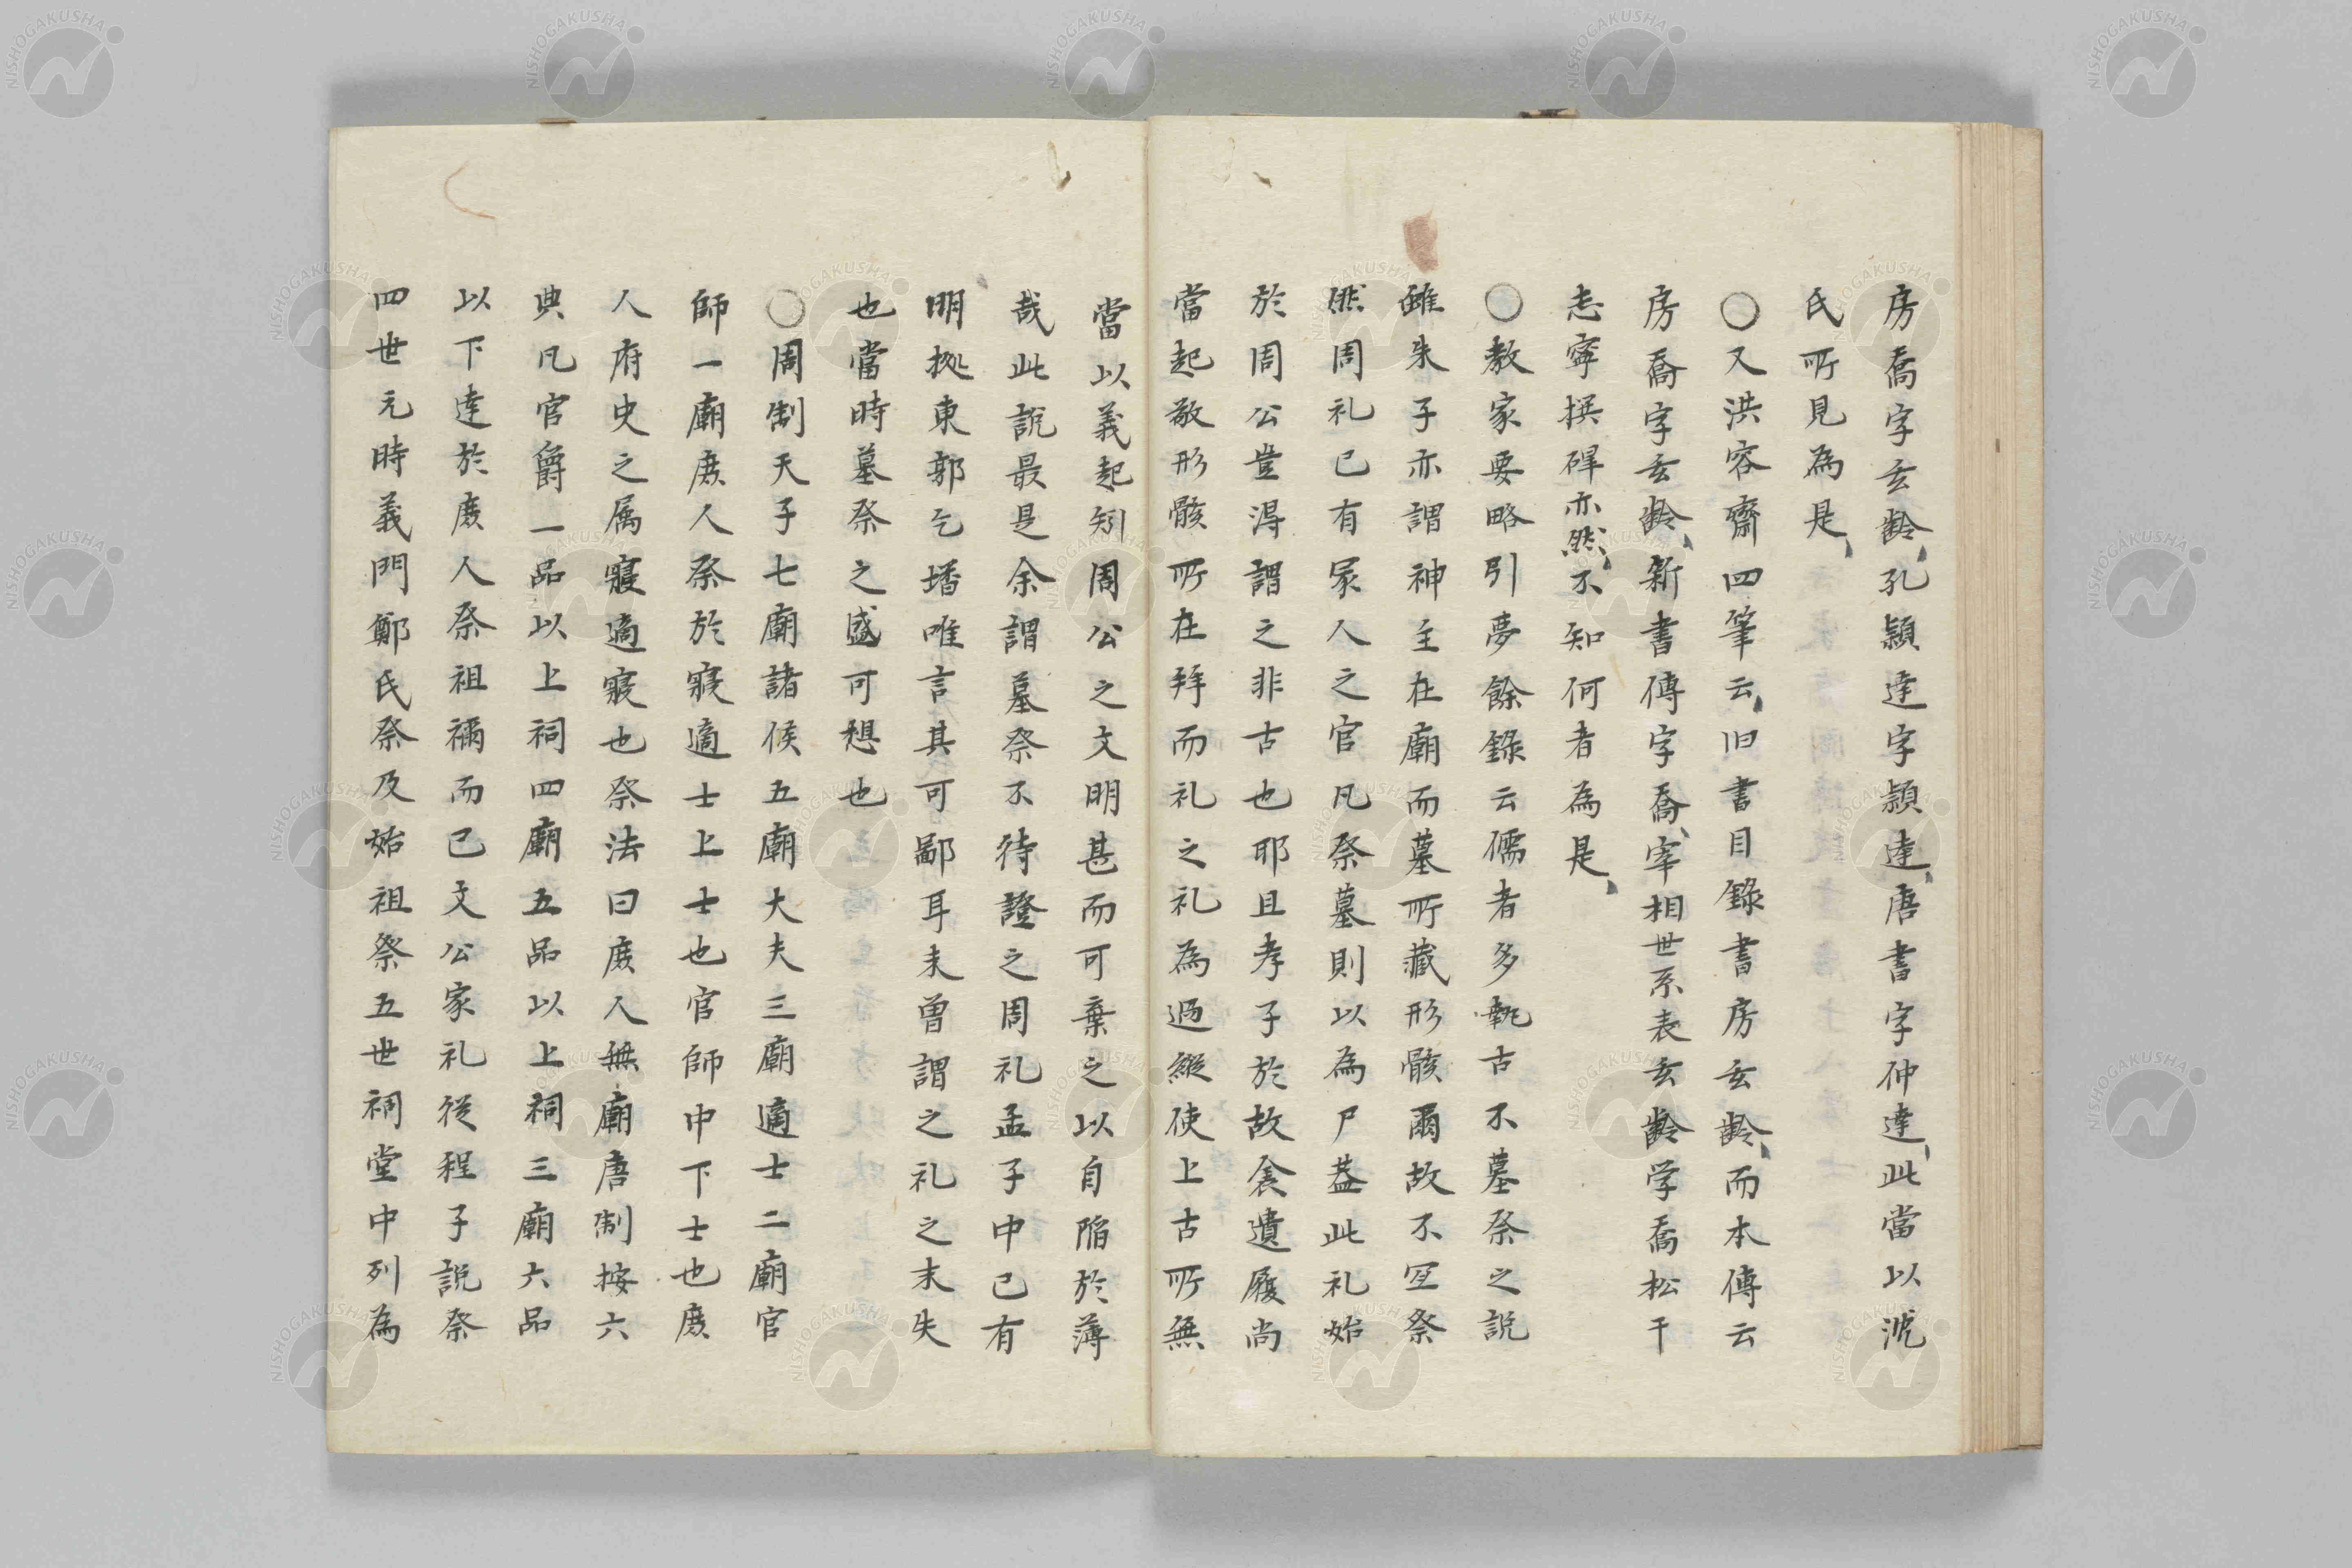 房喬字玄齡、孔穎達字穎達、唐書字仲達、此當以沈
氏所見為是、
○又洪容齋四筆云、旧書目錄書房玄齡、而本傳云
房喬字玄齡、新書傳字喬、宰相世系表玄齡学喬松于
志寧撰碑亦然、不知何者為是、
○教家要略引夢餘錄云儒者多執古不墓祭之説
雖朱子亦謂神主在廟而墓所藏形骸爾故不宜祭
然周礼已有冢人之官凡祭墓則以為尸蓋此礼始
於周公豈得謂之非古也耶且孝子於故衾遺履尚
當起敬形骸所在拜而礼之礼為過縱使上古所無
當以義起矧周公之文明甚而可棄之以自陥於薄
哉此説最是余謂墓祭不待證之周礼孟子中已有
明拠東郭乞墦唯言其可鄙耳未曽謂之礼之末失
也當時墓祭之盛可想也
○周制天子七廟諸侯五廟大夫三廟適士二廟官
師一廟庶人祭於寢適士上士也官師中下士也庶
人府史之属寢適寢也祭法曰庶人無廟唐制按六
典凡官爵一品以上祠四廟五品以上祠三廟六品
以下達於庶人祭祖禰而已文公家礼從程子説祭
四世元時義門鄭氏祭及始祖祭五世祠堂中列為
NISHOGAKUSHA